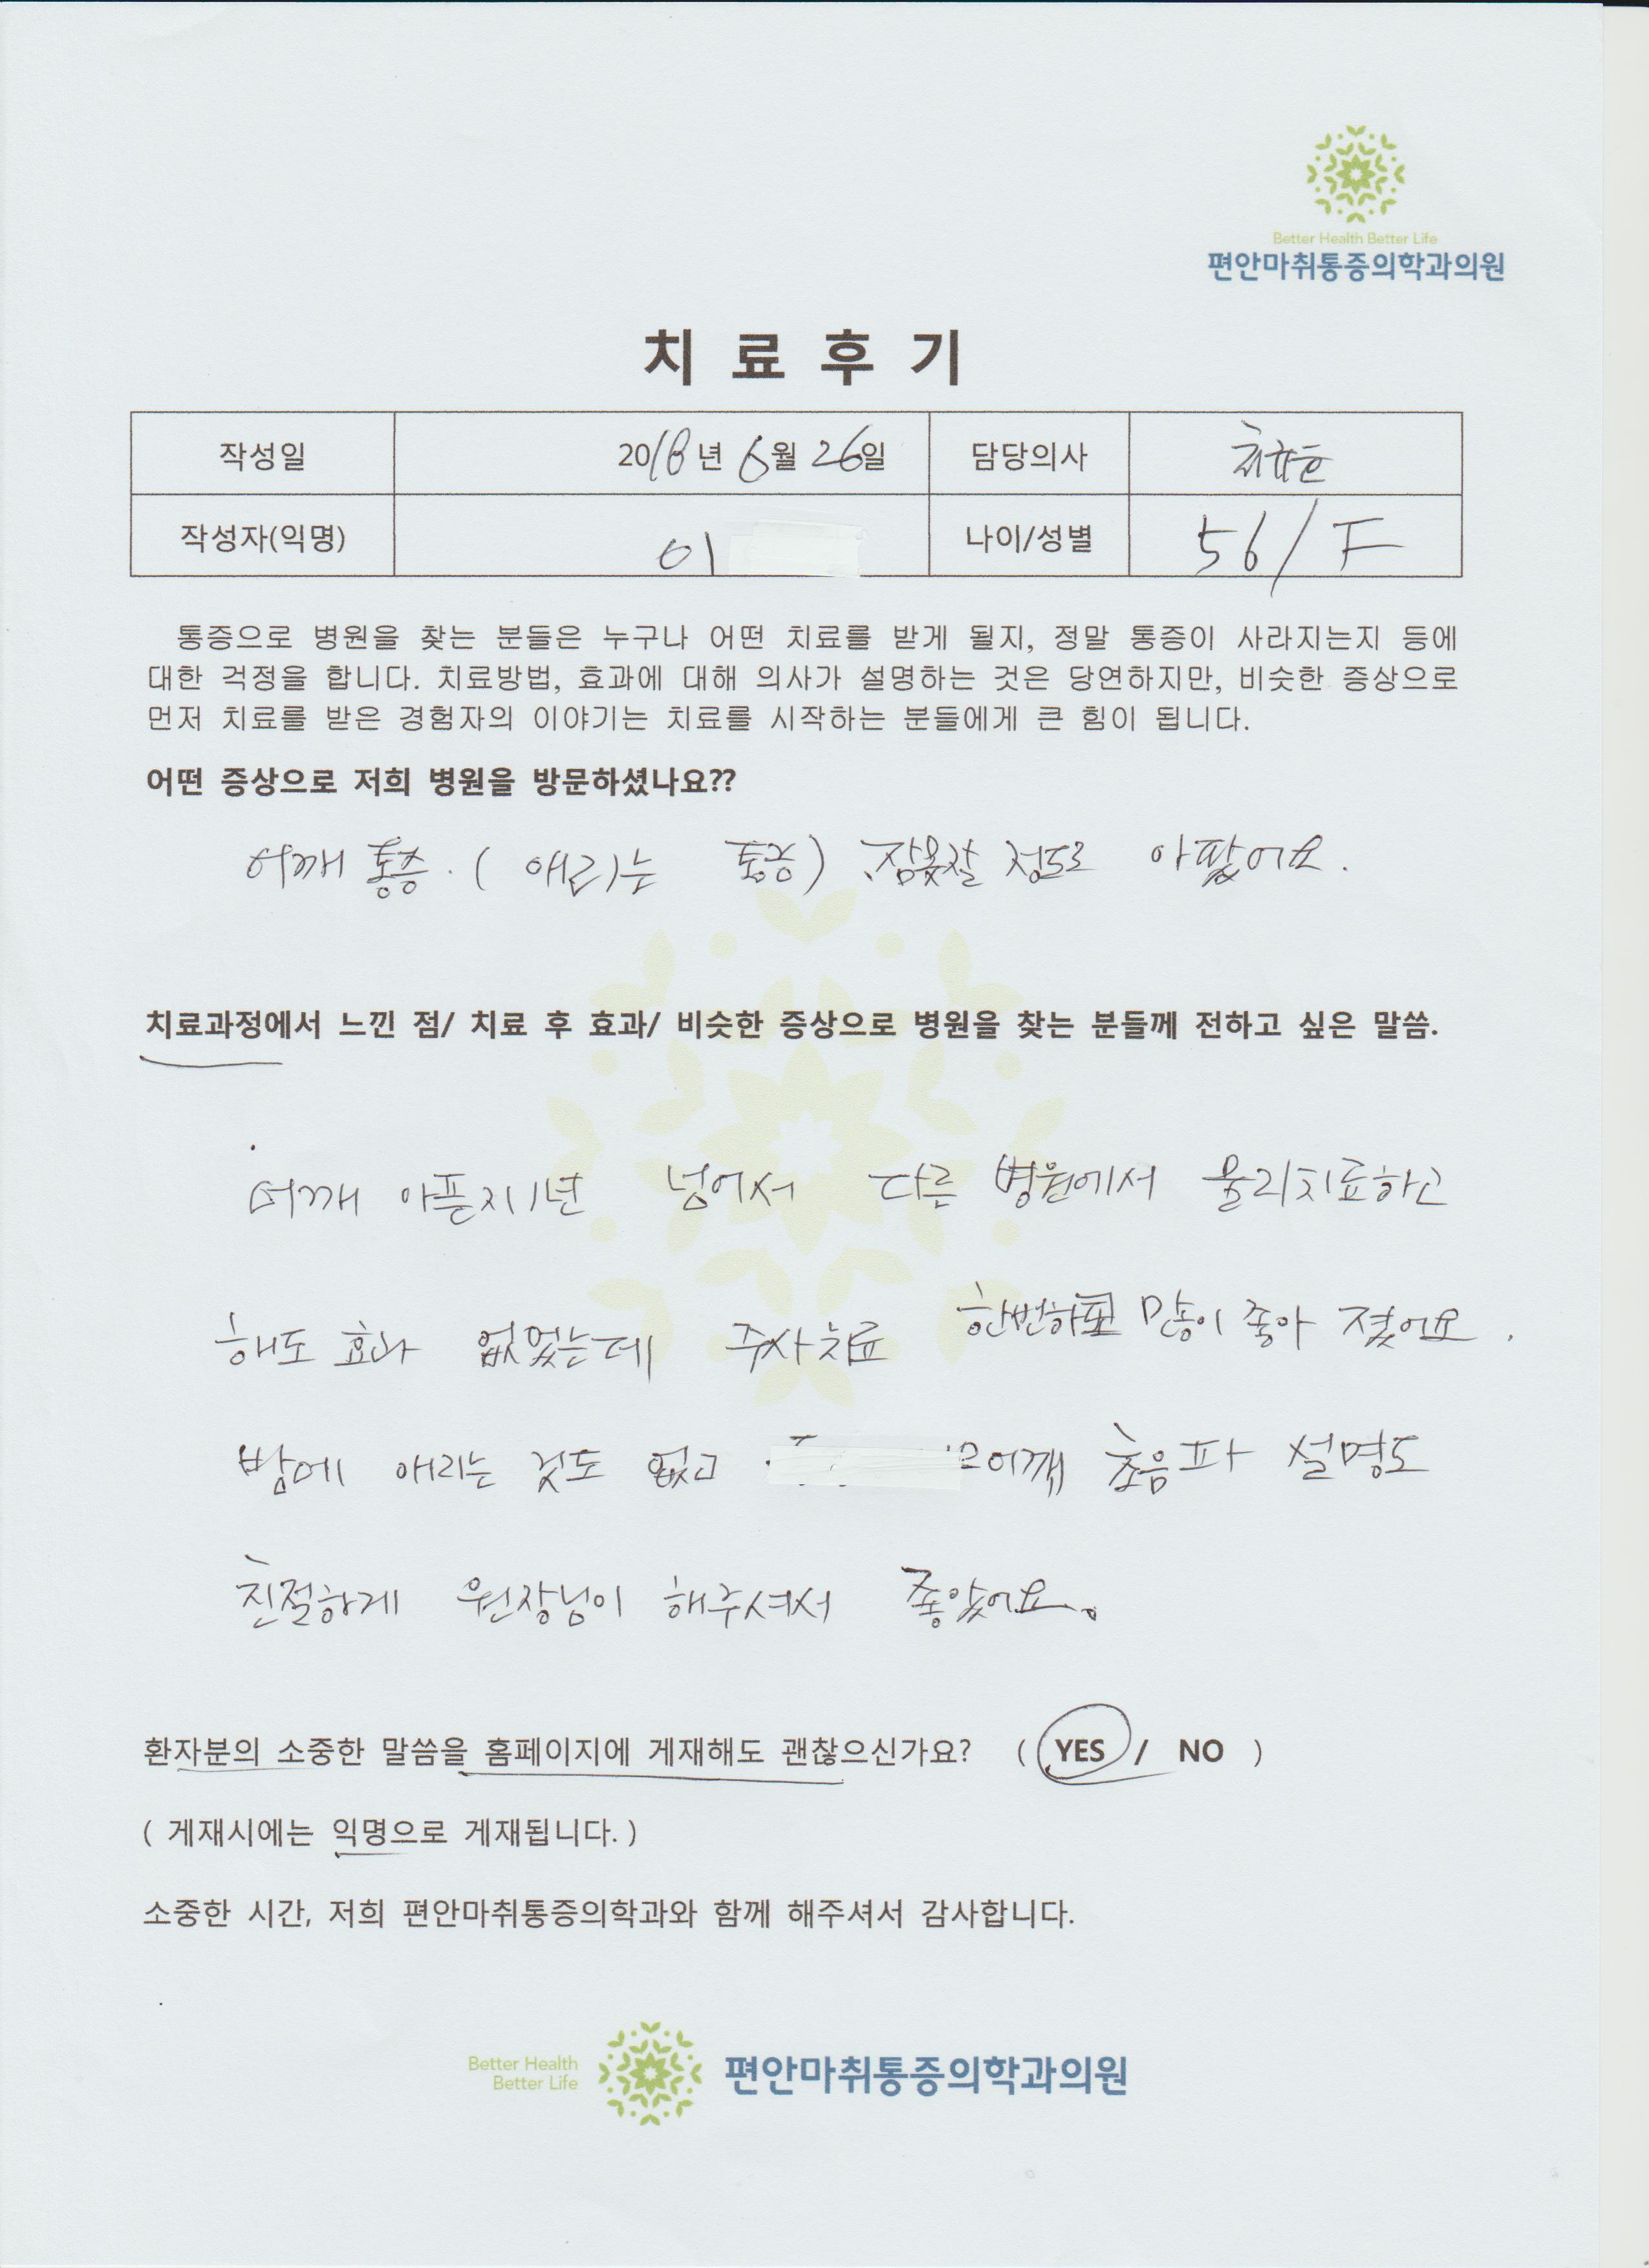 Better Health Better Life
편안마취통증의학과의원
치 료 후 기
작성일 2018년 6월 26일 담당의사
작성자(익명) 이 나이/성별 56/F
통증으로 병원을 찾는 분들은 누구나 어떤 치료를 받게 될지, 정말 통증이 사라지는지 등에
대한 걱정을 합니다. 치료방법, 효과에 대해 의사가 설명하는 것은 당연하지만, 비슷한 증상으로
먼저 치료를 받은 경험자의 이야기는 치료를 시작하는 분들에게 큰 힘이 됩니다.
어떤 증상으로 저희 병원을 방문하셨나요??
어깨 통증. ( 애리는 통증) 잠못잘 정도로 아팠어요.
치료과정에서 느낀 점/ 치료 후 효과/ 비슷한 증상으로 병원을 찾는 분들께 전하고 싶은 말씀.
어깨 아픈지 1년 넘어서 다른 병원에서 물리치료하고
해도 효과 없었는데 주사치료 한번하고 많이 좋아 졌어요.
밤에 애리는 것도 없고 어깨 초음파 설명도
친절하게 원장님이 해주셔서 좋았어요.
환자분의 소중한 말씀을 홈페이지에 게재해도 괜찮으신가요? ( YES / NO )
( 게재시에는 익명으로 게재됩니다. )
소중한 시간, 저희 편안마취통증의학과와 함께 해주셔서 감사합니다.
Better Health
Better Life
편안마취통증의학과의원